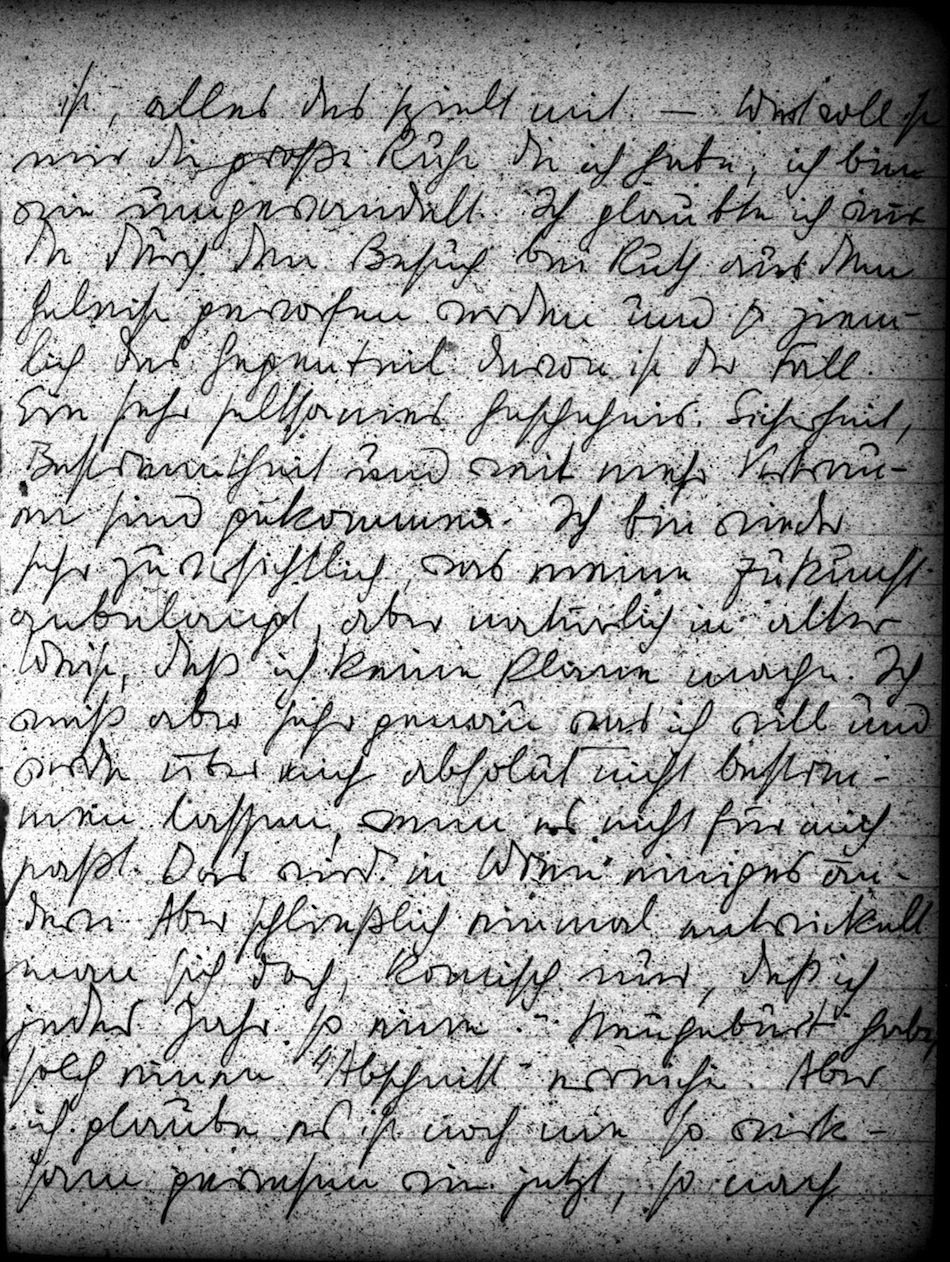 ist, alles das spielt mit. — Wertvoll ist
mir die große Ruhe die ich habe, ich bin
wie umgewandelt. Ich glaubte ich würde
durch den Besuch bei Ruth aus dem
Geleise geworfen werden und so ziem-
lich das Gegenteil davon ist der Fall.
Ein sehr seltsames Geschehnis. Sicherheit,
Bestimmtheit und weit mehr Vertrau-
en sind gekommen. Ich bin wieder
sehr zuversichtlich, was meine Zukunft
anbelangt, aber natürlich in alter
Weise, daß ich keine Pläne mache. Ich
weiß aber sehr genau was ich will und
werde über mich absolut nicht bestim-
men lassen, wenn es nicht für mich
paßt. Das wird in Wien einiges än-
dern. Aber schließlich einmal entwickelt
man sich doch, komisch nur, daß ich
jedes Jahr so eine "Neugeburt" habe,
solch einen "Abschnitt" erreiche. Aber
ich glaube es ist noch nie so wirk-
sam gewesen wie jetzt, so nach